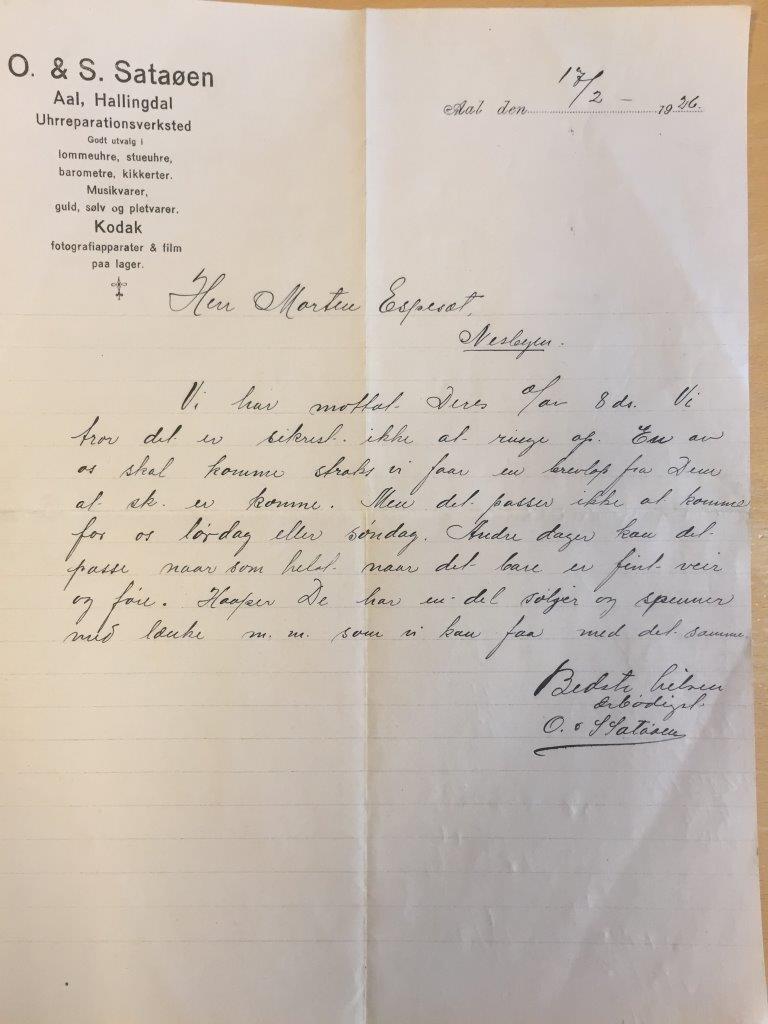 O. & S. Sataøen
Aal, Hallingdal
Uhrreparationsverksted
Godt utvalg i
lommeuhre, stueuhre,
barometre, kikkerter.
Musikvarer,
guld, sølv og pletvarer.
Kodak
fotografiapparater & film
paa lager.
Aal den 17/2 - 1926.
Herr Morten Espeset,
Nesbyen.
Vi har mottat Deres 8 ds. Vi
tror det er sikrest ikke at ringe op. En av
os skal komme straks vi faar en brevlap fra Dem
at sk. er komne. Men det passer ikke at komme
for os lørdag eller søndag. Andre dager kan det
passe naar som helst naar det bare er fint veir
og føre. Haaper De har en del søljer og spenner
med lænke m.m. som vi kan faa med det samme.
Bedste hilsen
ærbødigst
O. & S Sataøen